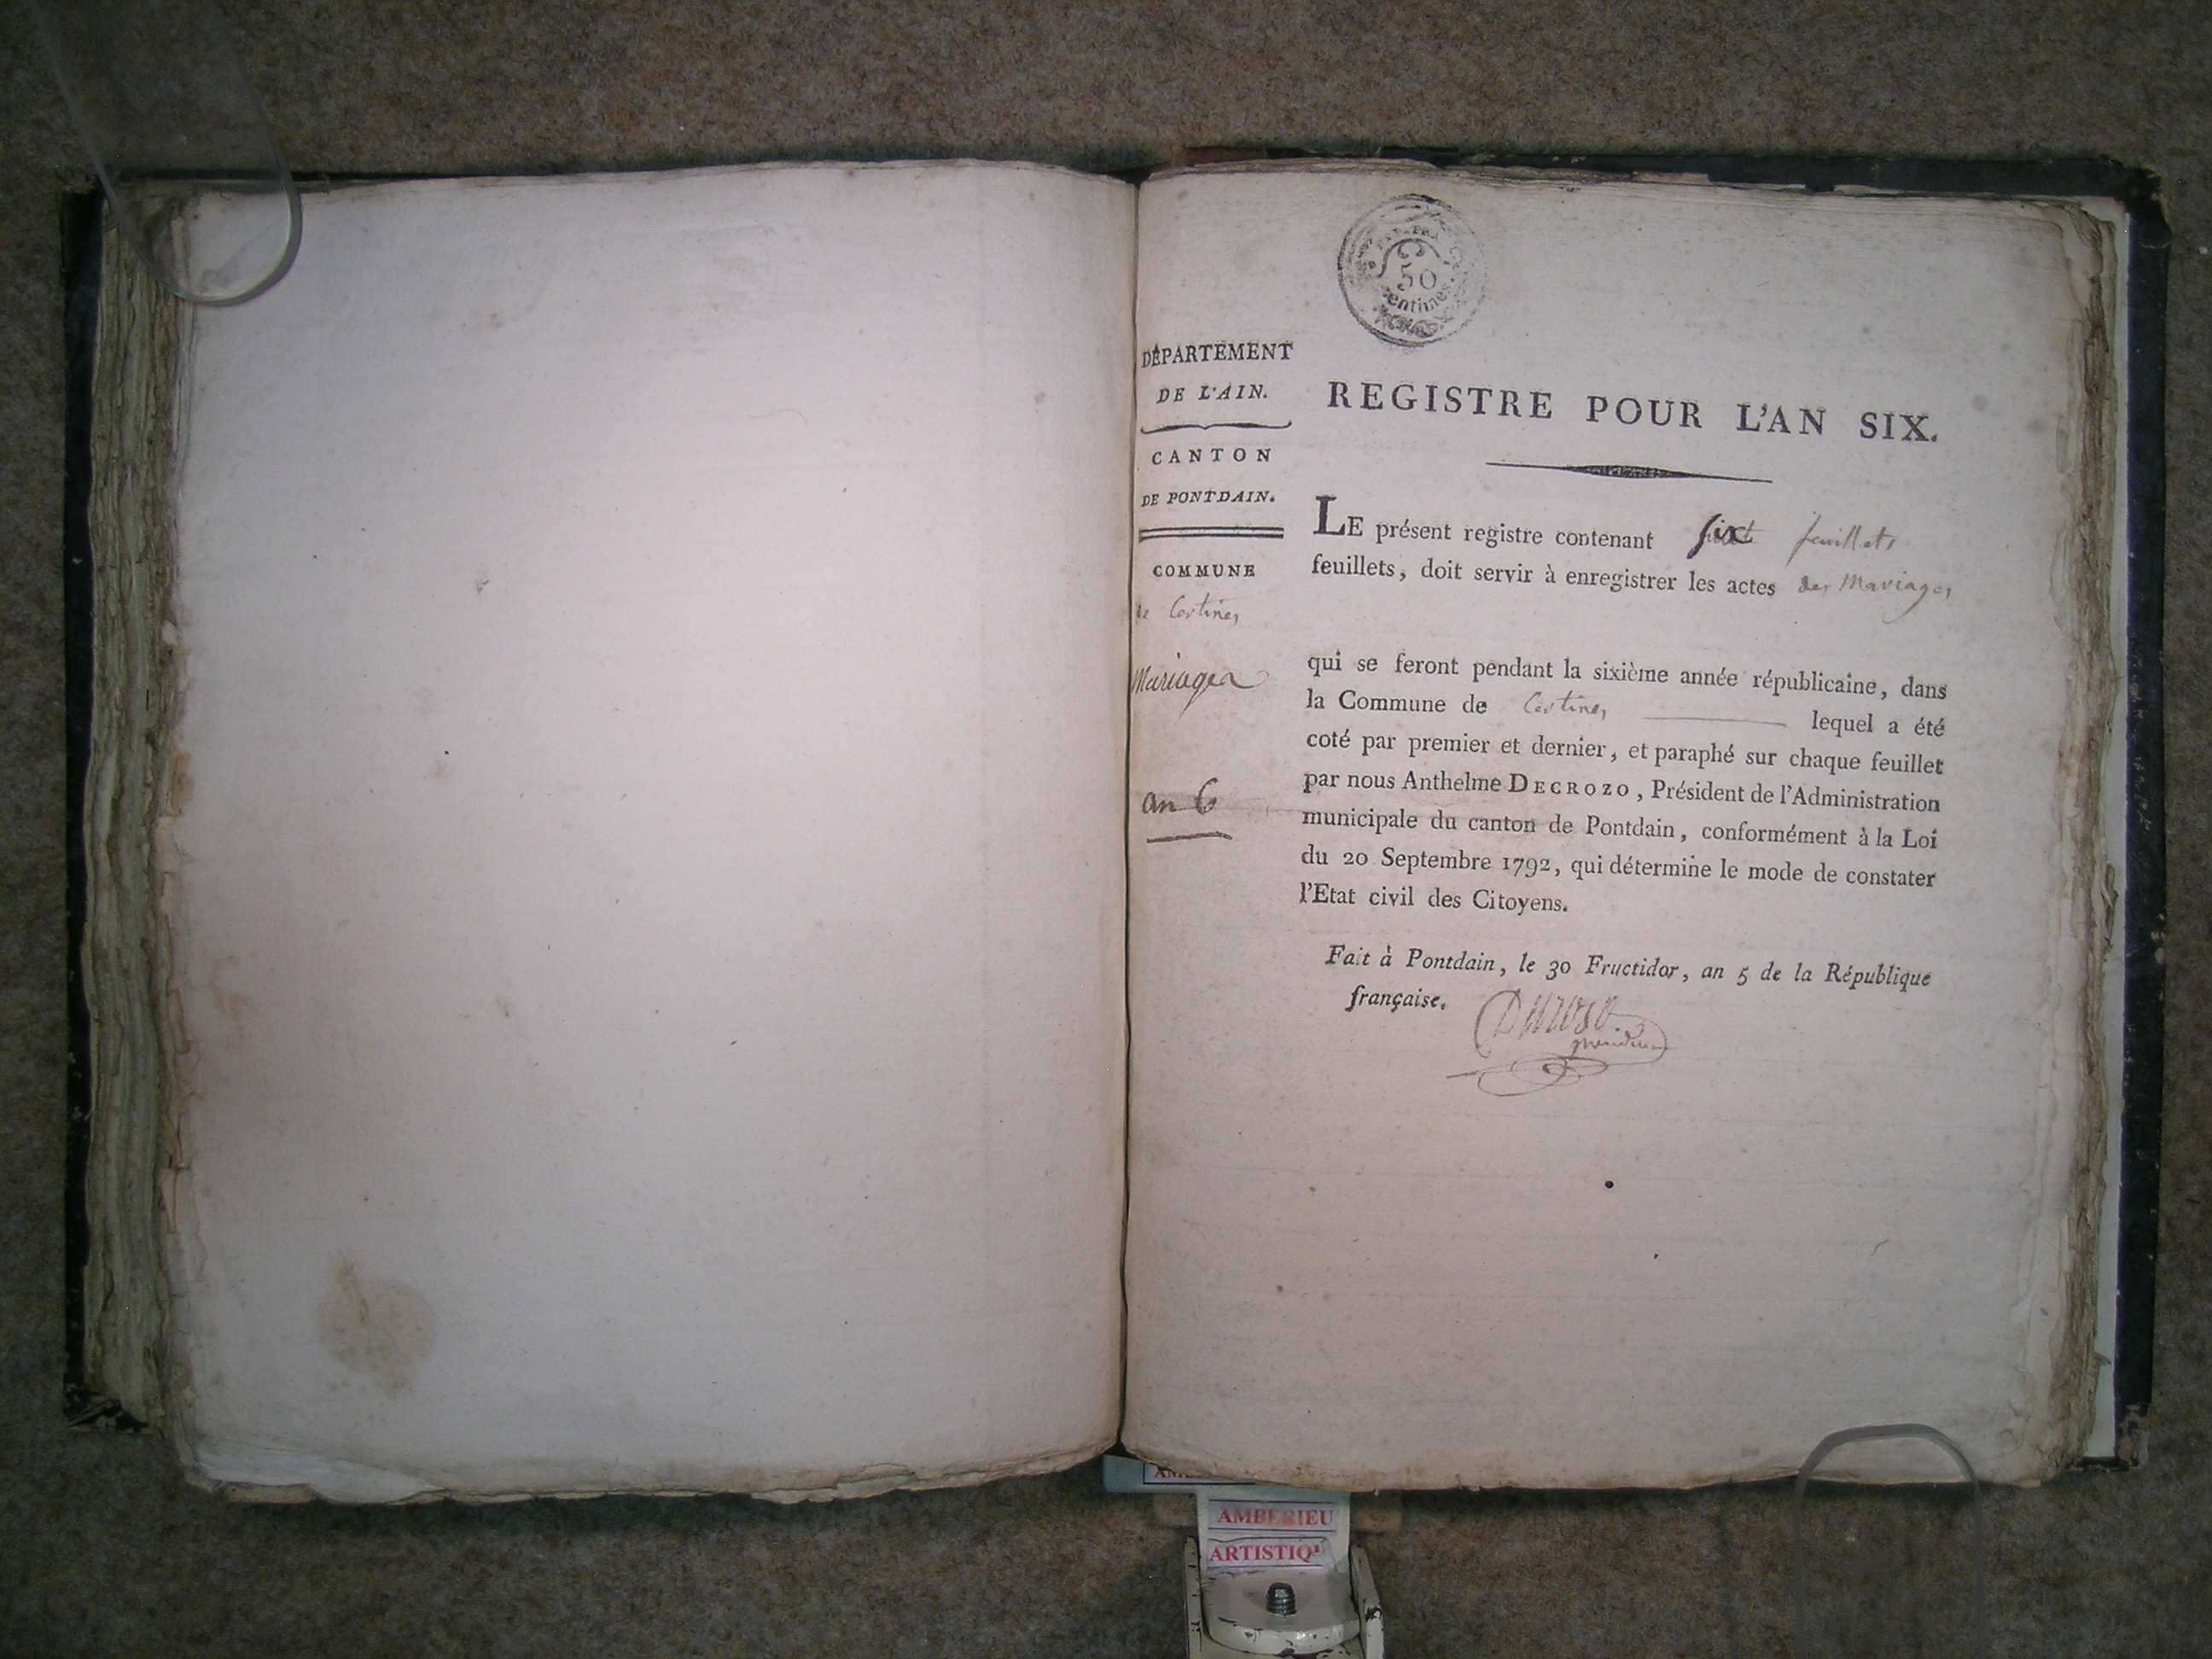 50
centimes.
DÉPARTEMENT
DE L'AIN.
CANTON
DE PONTDAIN.
COMMUNE
de Certines
Mariages
an 6
REGISTRE POUR L'AN SIX.
LE présent registre contenant six feuillets
feuillets, doit servir à enregistrer les actes des Mariages
qui se feront pendant la sixième année républicaine, dans
la Commune de Certines lequel a été
coté par premier et dernier, et paraphé sur chaque feuillet
par nous Anthelme DECROZO, Président de l'Administration
municipale du canton de Pontdain, conformément à la Loi
du 20 Septembre 1792, qui détermine le mode de constater
l'Etat civil des Citoyens.
Fait à Pontdain, le 30 Fructidor, an 5 de la République
française.
AMBERIEU
ARTISTIQ